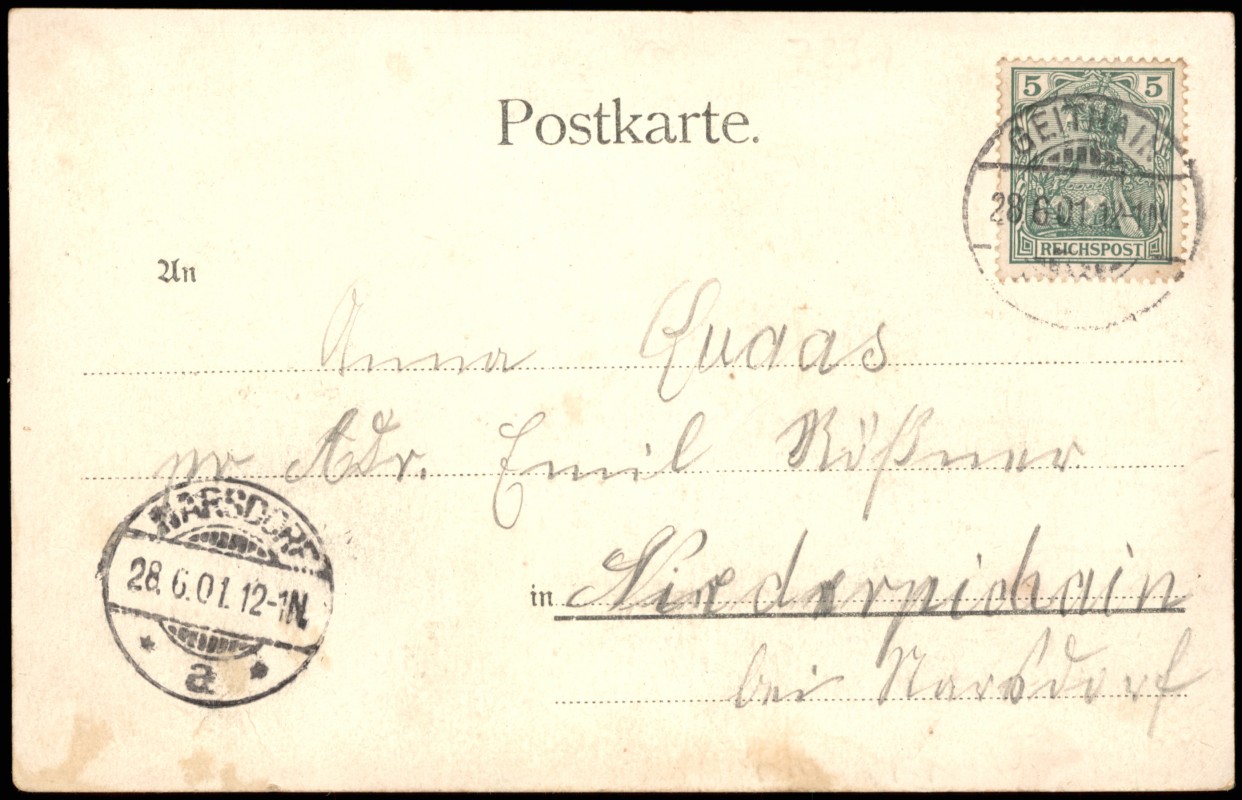 Postkarte.
5 5
GEITHAIN
28.6.01.12-1N.
REICHSPOST
An
Anna Quaas
pr Adr. Emil Rößner
NARSDORF
28.6.01.12-1N.
a
in
bei Narsdorf